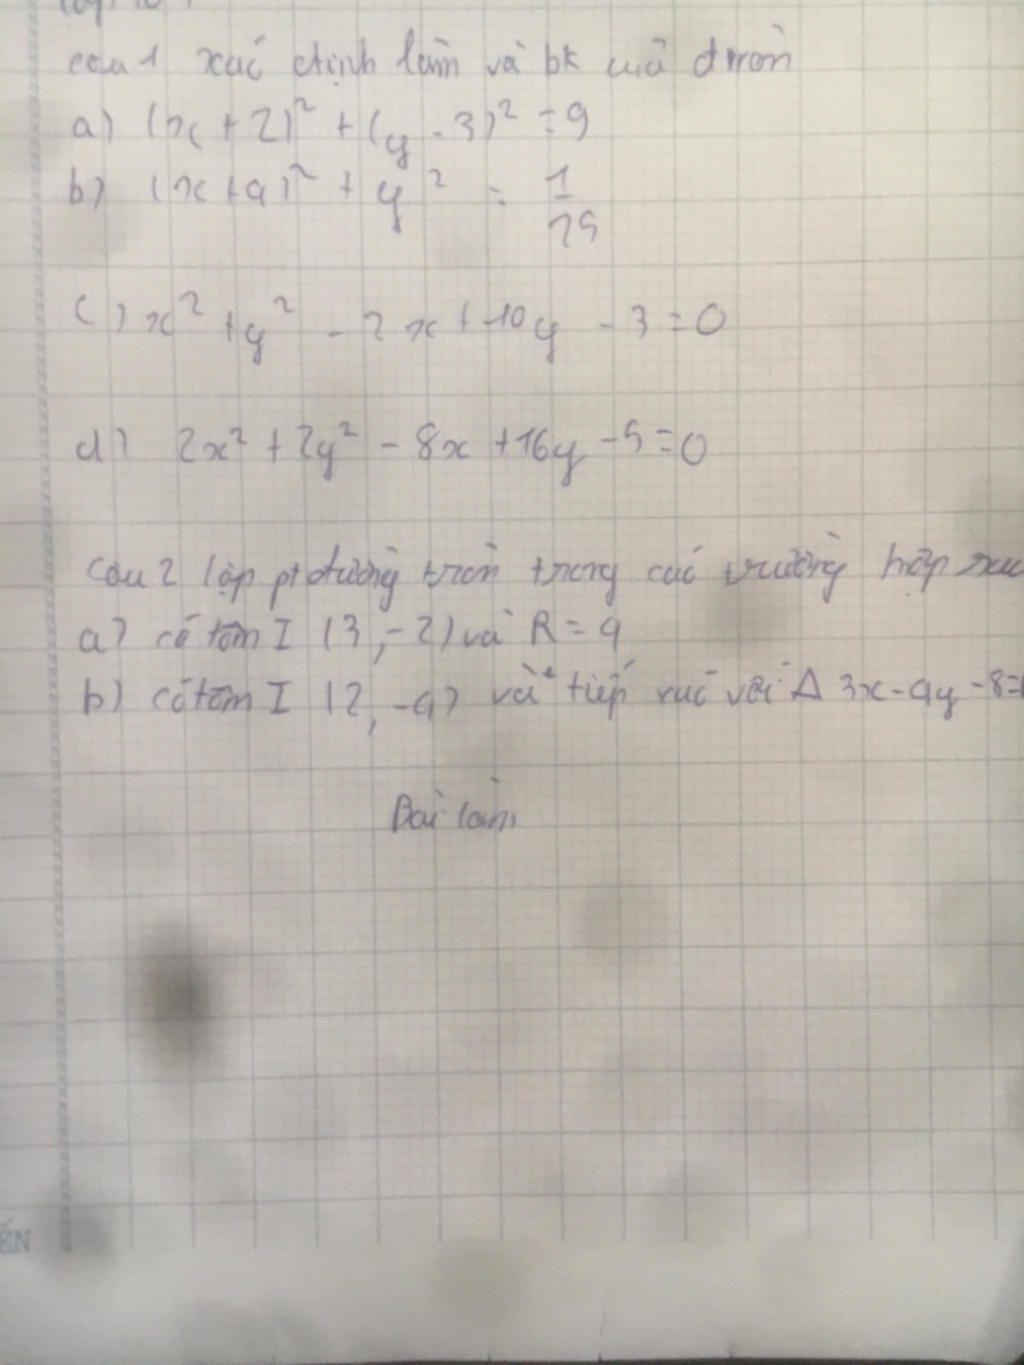 lớp: 10
câu 1 xác định tâm và bk của đ tròn
a) (x + 2)² + (y - 3)² = 9
b) (x + 4)² + y² = 1/25
c) x² + y² - 2x + 10y - 3 = 0
d) 2x² + 2y² - 8x + 16y - 5 = 0
câu 2 lập pt đường tròn trong các trường hợp sau
a) có tâm I (3, -2) và R = 4
b) có tâm I (2, -4) và tiếp xúc với Δ 3x - 4y - 8 = 0
Bài làm
ẾN